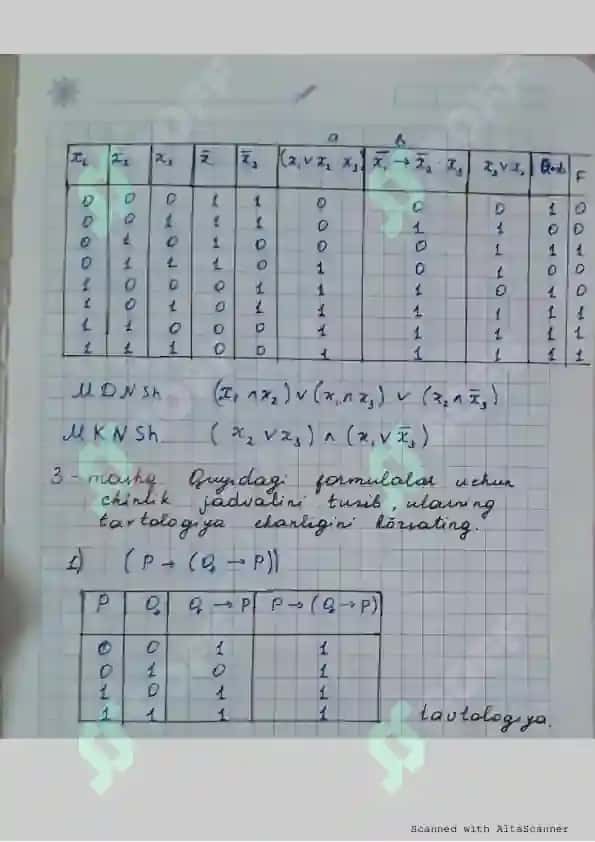 x₁ x₂ x₃ x̄ x̄₃ (x₁ ∨ x₂ · x₃) x̄₁ → x̄₂ · x₃ x₂ ∨ x₃ F
0 0 0 1 1 0 0 0 1 0
0 0 1 1 1 0 1 1 0 0
0 1 0 1 0 0 0 1 1 1
0 1 1 1 0 1 0 1 0 0
1 0 0 0 1 1 1 0 1 0
1 0 1 0 1 1 1 1 1 1
1 1 0 0 0 1 1 1 1 1
1 1 1 0 0 1 1 1 1 1
MDNSh (x₁ ∧ x₂) ∨ (x₁ ∧ x₃) ∨ (x₂ ∧ x̄₃)
MKNSh (x₂ ∨ x₃) ∧ (x₁ ∨ x̄₃)
3 - mashq Quyidagi formulalar uchun
chinlik jadvalini tuzib, ularning
tavtologiya ekanligini körsating.
1) (P → (Q → P))
P Q Q → P P → (Q → P)
0 0 1 1
0 1 0 1
1 0 1 1
1 1 1 1
tavtologiya.
Scanned with AltaScanner